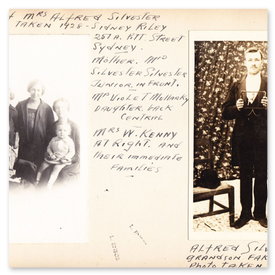 MRS ALFRED SILVESTER
TAKEN 1928 - SIDNEY RILEY
257A. PITT STREET
SYDNEY.
MOTHER. MRS
SILVESTER SILVESTER
JUNIOR, IN FRONT.
MRS VIOLET
DAUGHTER BACK
CENTRAL
MRS W. KENNY
AT RIGHT. AND
THEIR IMMEDIATE
FAMILIES
ALFRED SILV
GRANDSON FAR
PHOTO TAKEN